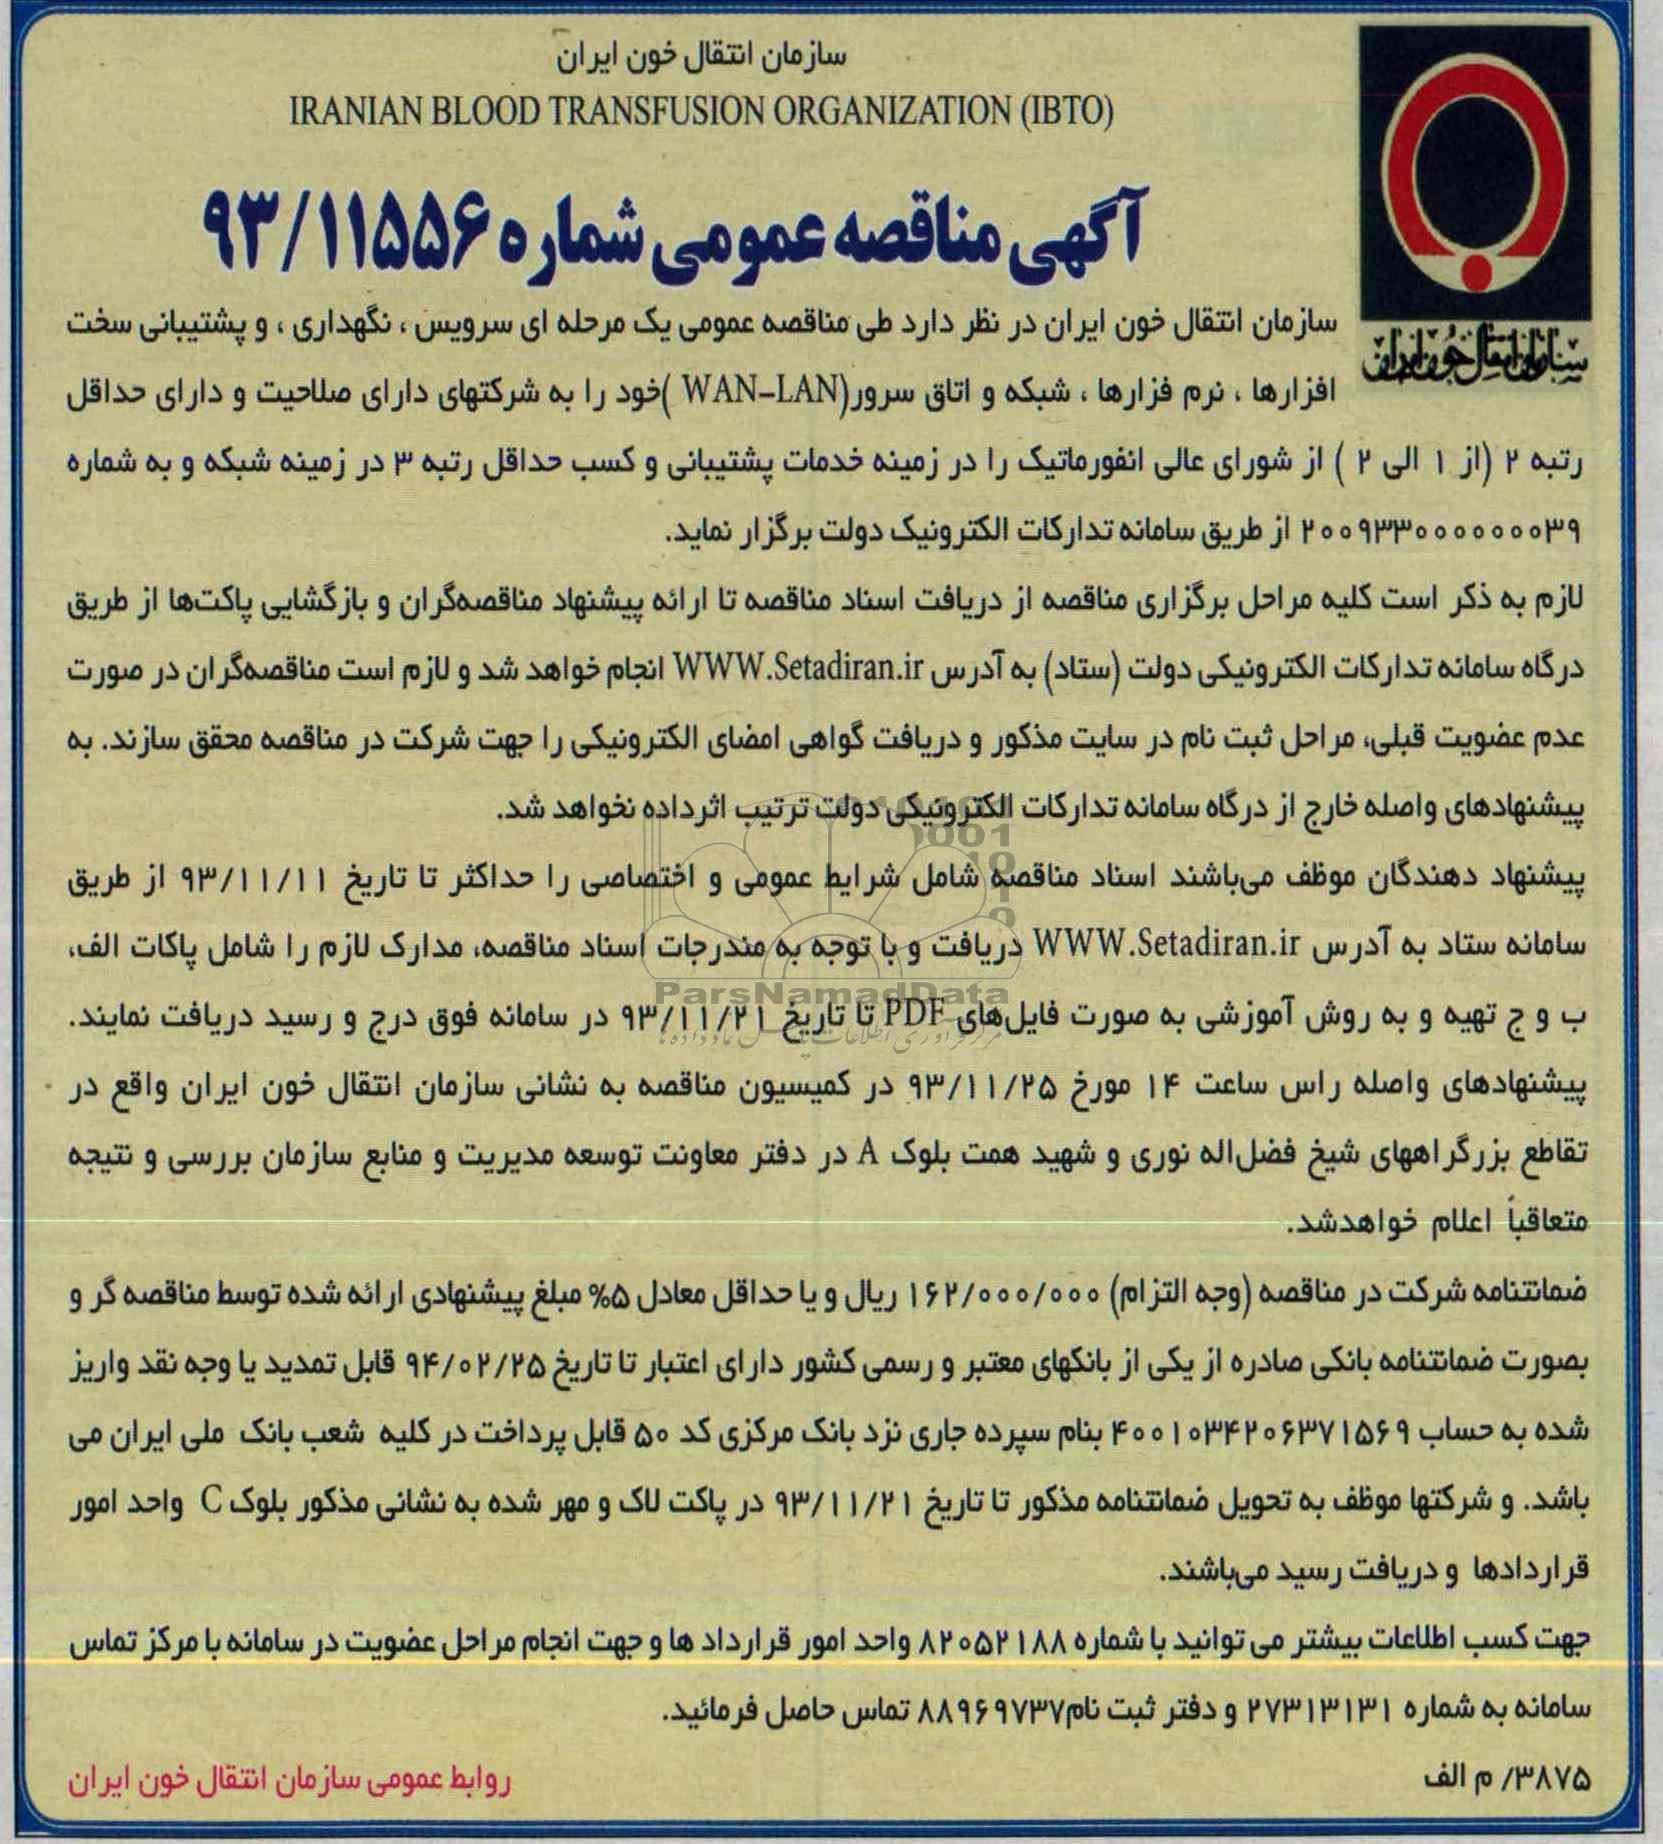 سازمان انتقال خون ایران
IRANIAN BLOOD TRANSFUSION ORGANIZATION (IBTO)
آگهی مناقصه عمومی شماره ۹۳/۱۱۵۵۶
سازمان انتقال خون ایران
سازمان انتقال خون ایران در نظر دارد طی مناقصه عمومی یک مرحله ای سرویس ، نگهداری ، و پشتیبانی سخت
افزارها ، نرم فزارها ، شبکه و اتاق سرور(WAN-LAN )خود را به شرکتهای دارای صلاحیت و دارای حداقل
رتبه ۲ (از ۱ الی ۲ ) از شورای عالی انفورماتیک را در زمینه خدمات پشتیبانی و کسب حداقل رتبه ۳ در زمینه شبکه و به شماره
۲۰۰۹۳۳۰۰۰۰۰۰۰۳۹ از طریق سامانه تدارکات الکترونیک دولت برگزار نماید.
لازم به ذکر است کلیه مراحل برگزاری مناقصه از دریافت اسناد مناقصه تا ارائه پیشنهاد مناقصه‌گران و بازگشایی پاکت‌ها از طریق
درگاه سامانه تدارکات الکترونیکی دولت (ستاد) به آدرس WWW.Setadiran.ir انجام خواهد شد و لازم است مناقصه‌گران در صورت
عدم عضویت قبلی، مراحل ثبت نام در سایت مذکور و دریافت گواهی امضای الکترونیکی را جهت شرکت در مناقصه محقق سازند. به
پیشنهادهای واصله خارج از درگاه سامانه تدارکات الکترونیکی دولت ترتیب اثرداده نخواهد شد.
پیشنهاد دهندگان موظف می‌باشند اسناد مناقصه شامل شرایط عمومی و اختصاصی را حداکثر تا تاریخ ۹۳/۱۱/۱۱ از طریق
سامانه ستاد به آدرس WWW.Setadiran.ir دریافت و با توجه به مندرجات اسناد مناقصه، مدارک لازم را شامل پاکات الف،
ب و ج تهیه و به روش آموزشی به صورت فایل‌های PDF تا تاریخ ۹۳/۱۱/۲۱ در سامانه فوق درج و رسید دریافت نمایند.
ParsNamadData
پیشنهادهای واصله راس ساعت ۱۴ مورخ ۹۳/۱۱/۲۵ در کمیسیون مناقصه به نشانی سازمان انتقال خون ایران واقع در
تقاطع بزرگراههای شیخ فضل‌اله نوری و شهید همت بلوک A در دفتر معاونت توسعه مدیریت و منابع سازمان بررسی و نتیجه
متعاقباً اعلام خواهدشد.
ضمانتنامه شرکت در مناقصه (وجه التزام) ۱۶۲/۰۰۰/۰۰۰ ریال و یا حداقل معادل ۵% مبلغ پیشنهادی ارائه شده توسط مناقصه گر و
بصورت ضمانتنامه بانکی صادره از یکی از بانکهای معتبر و رسمی کشور دارای اعتبار تا تاریخ ۹۴/۰۲/۲۵ قابل تمدید یا وجه نقد واریز
شده به حساب ۴۰۰۱۰۳۴۲۰۶۳۷۱۵۶۹ بنام سپرده جاری نزد بانک مرکزی کد ۵۰ قابل پرداخت در کلیه شعب بانک ملی ایران می
باشد. و شرکتها موظف به تحویل ضمانتنامه مذکور تا تاریخ ۹۳/۱۱/۲۱ در پاکت لاک و مهر شده به نشانی مذکور بلوک C واحد امور
قراردادها و دریافت رسید می‌باشند.
جهت کسب اطلاعات بیشتر می توانید با شماره ۸۲۰۵۲۱۸۸ واحد امور قرارداد ها و جهت انجام مراحل عضویت در سامانه با مرکز تماس
سامانه به شماره ۲۷۳۱۳۱۳۱ و دفتر ثبت نام۸۸۹۶۹۷۳۷ تماس حاصل فرمائید.
۳۸۷۵/ م الف
روابط عمومی سازمان انتقال خون ایران